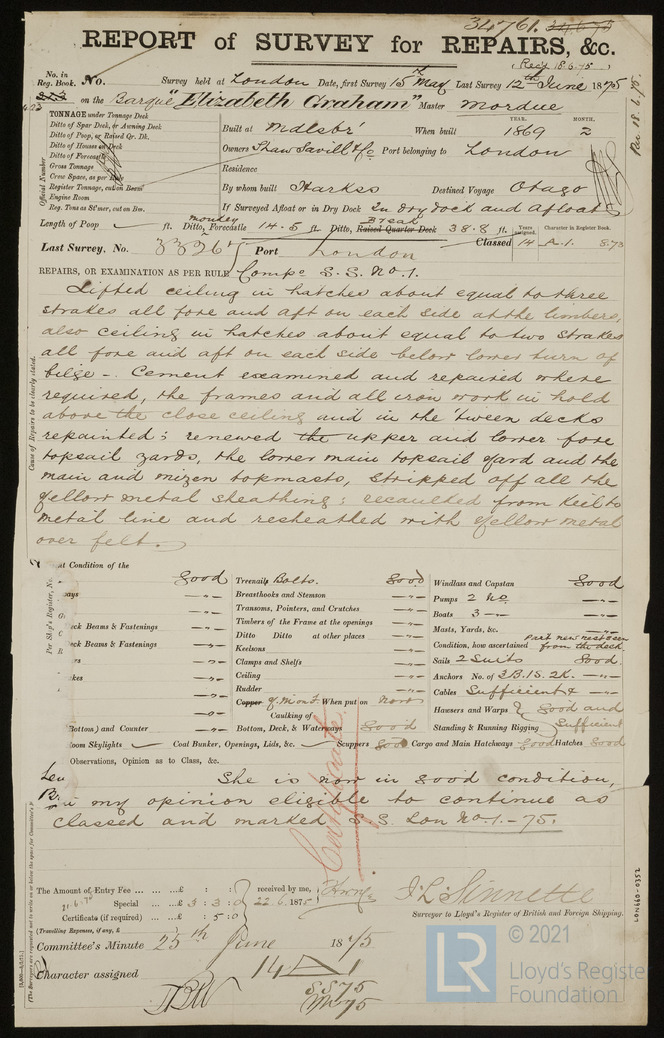 34761.
REPORT of SURVEY for REPAIRS, &c.
(Rec'd 18.6.75)
No. in Reg. Book. No. Survey held at London Date, first Survey 15th May Last Survey 12th June 1875
423 on the Barque "Elizabeth Graham" Master Mordue
TONNAGE under Tonnage Deck
Ditto of Spar Deck, or Awning Deck
Ditto of Poop, or Raised Qr. Dk.
Ditto of Houses on Deck
Ditto of Forecastle
Gross Tonnage
Crew Space, as per Rule
Register Tonnage, cut on Beam
Engine Room
Reg. Tons as St'mer, cut on Bm.
Official Number
YEAR. MONTH.
Built at Mdlsbr' When built 1869 2
Owners Shaw Savill & Co Port belonging to London
Residence
By whom built Harkss Destined Voyage Otago
If Surveyed Afloat or in Dry Dock In dry dock and afloat
Length of Poop ft. Ditto, monkey Forecastle 14.5 ft. Ditto, Break Raised Quarter Deck 38.8 ft.
Years assigned. Character in Register Book.
Last Survey, No. 33265 Port London Classed 14 A.1. 8.73
REPAIRS, OR EXAMINATION AS PER RULE, Compe S.S. No. 1.
Lifted ceiling in hatches about equal to three
strakes all fore and aft on each side at the limbers,
also ceiling in hatches about equal to two strakes
all fore and aft on each side below lower turn of
bilge -. Cement examined and repaired where
required, the frames and all iron work in hold
above the close ceiling and in the 'tween decks
repainted; renewed the upper and lower fore
topsail yards, the lower main topsail yard and the
main and mizen topmasts, stripped off all the
yellow metal sheathing; recaulked from keel to
metal line and resheathed with yellow metal
over felt.
Cause of Repairs to be clearly stated.
nt Condition of the
Good Treenails Bolts. Good Windlass and Capstan Good
Breasthooks and Stemson Pumps 2 No
Transoms, Pointers, and Crutches Boats 3
eck Beams & Fastenings Timbers of the Frame at the openings Masts, Yards, &c.
Ditto Ditto at other places Condition, how ascertained part new rest seen from the deck.
eck Beams & Fastenings Keelsons Sails 2 Suits Good.
Clamps and Shelfs Anchors No. of 3B. 1S. 2K.
Ceiling Cables Sufficient &
Rudder Hawsers and Warps Good and
Copper Y. Mont. When put on Now Standing & Running Rigging Sufficient
Caulking of
Bottom) and Counter Bottom, Deck, & Waterways Good
oom Skylights Coal Bunker, Openings, Lids, &c. Scuppers Good Cargo and Main Hatchways Good Hatches Good
Observations, Opinion as to Class, &c.
She is now in good condition,
in my opinion eligible to continue as
classed and marked S.S. Lon No. 1.-75.
Certificate.
The Amount of Entry Fee ... ...£ : : received by me,
Special ... ...£ 3 : 3 : 0 22.6.1875
Certificate (if required) ...£ : 5 : 0
(Travelling Expenses, if any, £
Surveyor to Lloyd's Register of British and Foreign Shipping.
Committee's Minute 25th June 1875
Character assigned 14 A 1
S.S 75
M 75
LON907-0352
LR © 2021
Lloyd's Register
Foundation